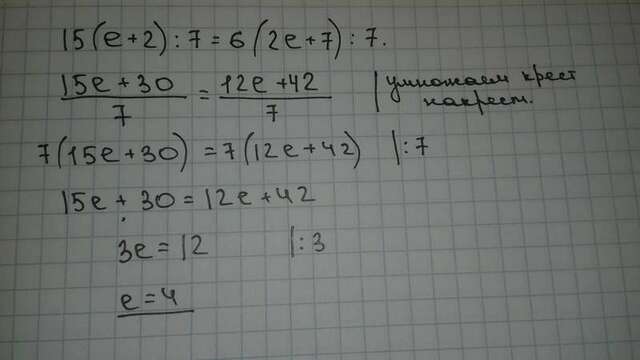 15(e+2):7=6(2e+7):7.
15e+30/7 = 12e+42/7 | умножаем крест накрест.
7(15e+30)=7(12e+42) |:7
15e+30=12e+42
3e=12 |:3
e=4